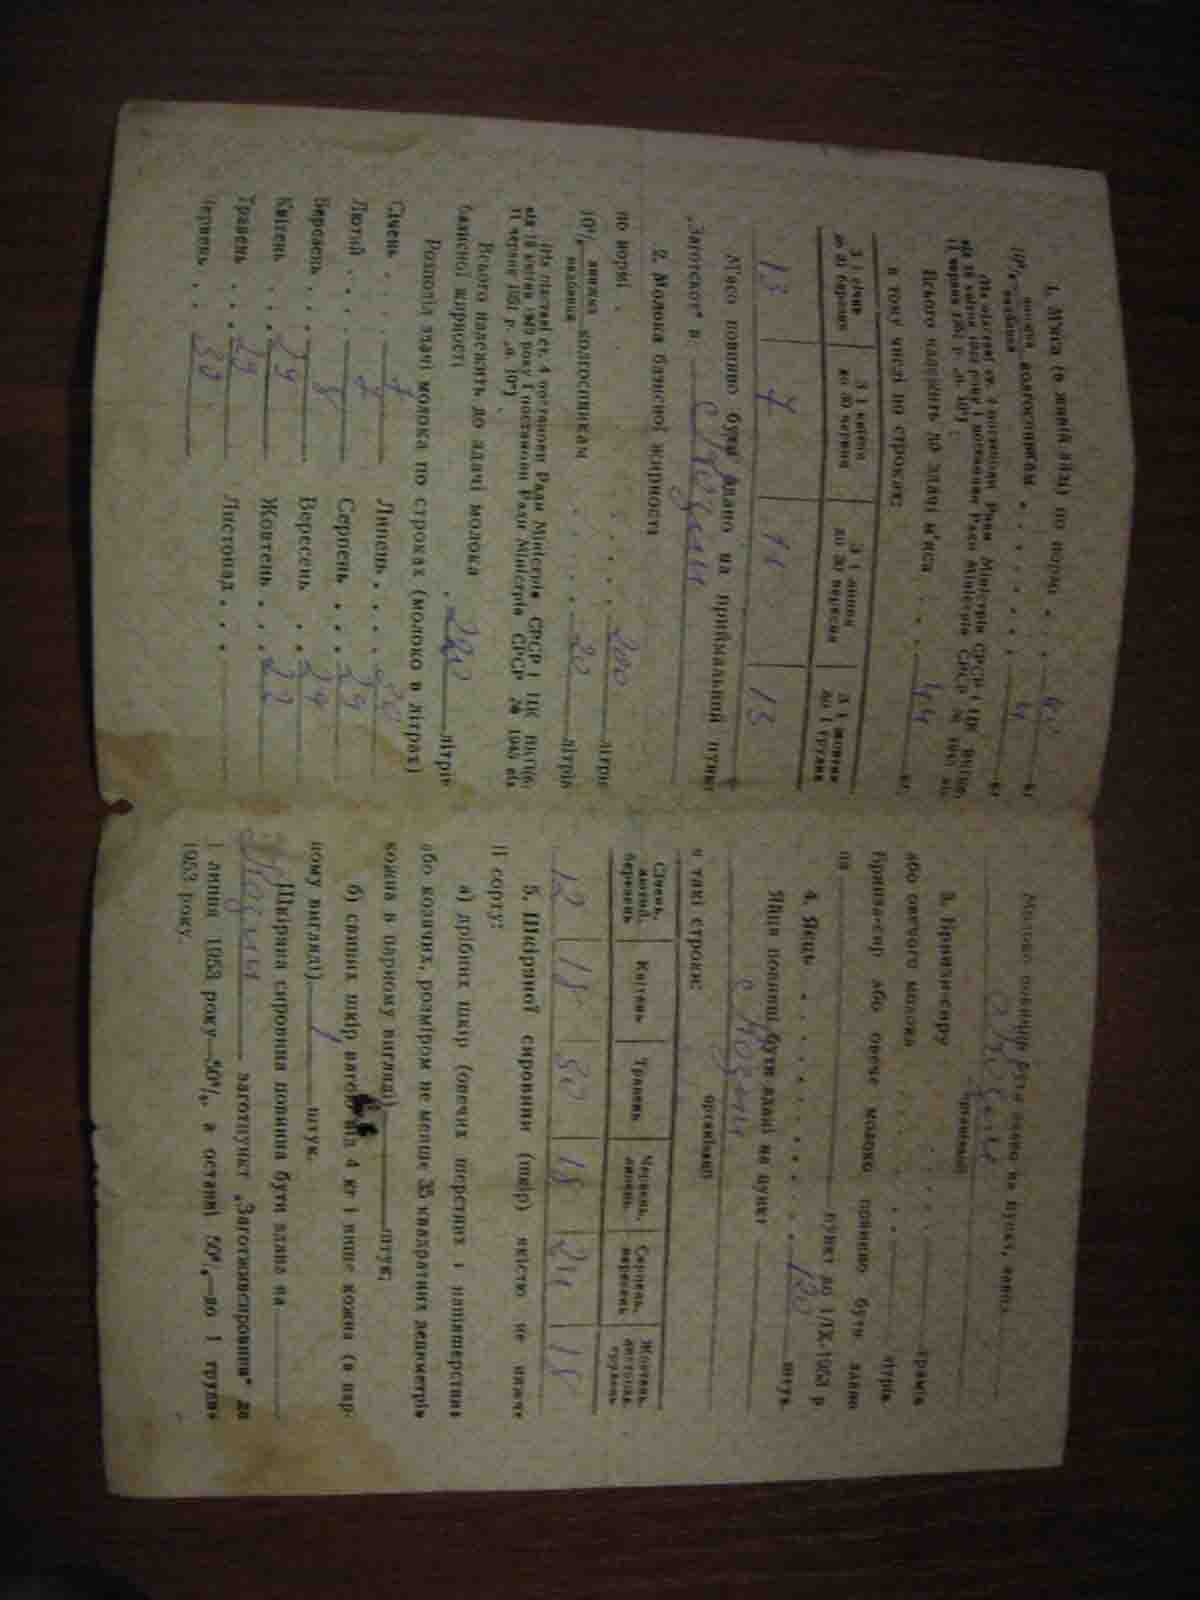 1. М'яса (в живій вазі) по нормі . . . 40 кг
10% знижка надбавка колгоспникам . . . 4 кг
(На підставі ст. 4 постанови Ради Міністрів СРСР і ЦК ВКП(б)
від 18 квітня 1949 року і постанови Ради Міністрів СРСР № 1945 від
11 червня 1951 р. „п. 10“)
Всього належить до здачі м'яса . . . 44 кг,
в тому числі по строках:
З 1 січня до 31 березня
З 1 квітня до 30 червня
З 1 липня до 30 вересня
З 1 жовтня до 1 грудня
13 7 11 13
М'ясо повинно бути здано на приймальний пункт
„Заготскот“ в с. Козин
2. Молока базисної жирності
по нормі . . . 200 літрів
10% знижка надбавка колгоспникам . . . 20 літрів
(На підставі ст. 4 постанови Ради Міністрів СРСР і ЦК ВКП(б)
від 18 квітня 1949 року і постанови Ради Міністрів СРСР № 1945 від
11 червня 1951 р. „п. 10“)
Всього належить до здачі молока . 220 літрів
базисної жирності
Розподіл здачі молока по строках (молоко в літрах)
Січень . . . 7 Липень . . . 30
Лютий . . . 7 Серпень . . . 29
Березень . . . 8 Вересень . .
Квітень . . . 29 Жовтень . . 22
Травень . . . 29 Листопад . . .
Червень . . 30
Молоко повинно бути здано на пункт, завод
с. Козин
3. Бринзи-сиру . . . грамів
або овечого молока . . . літрів
Бринза-сир або овече молоко повинно бути здано
на пункт до 1/IX-1953 р.
4. Яєць . . . 120 штук.
Яйця повинні бути здані на пункт
с. Козин
організації
в такі строки:
Січень, лютий, березень
Квітень
Травень
Червень, липень
Серпень, вересень
Жовтень, листопад, грудень
12 18 30 18 24 18
5. Шкіряної сировини (шкір) якістю не нижче
II сорту:
а) дрібних шкір (овечих шерстних і напівшерстних
або козячих, розміром не менше 35 квадратних дециметрів
кожна в парному вигляді) штук;
б) свиних шкір вагою від 4 кг і вище кожна (в пар-
ному вигляді) 1 штук.
Шкіряна сировина повинна бути здана на
Козин заготпункт „Заготживсировина“ до
1 липня 1953 року—50%, а останні 50%—до 1 грудня
1953 року.